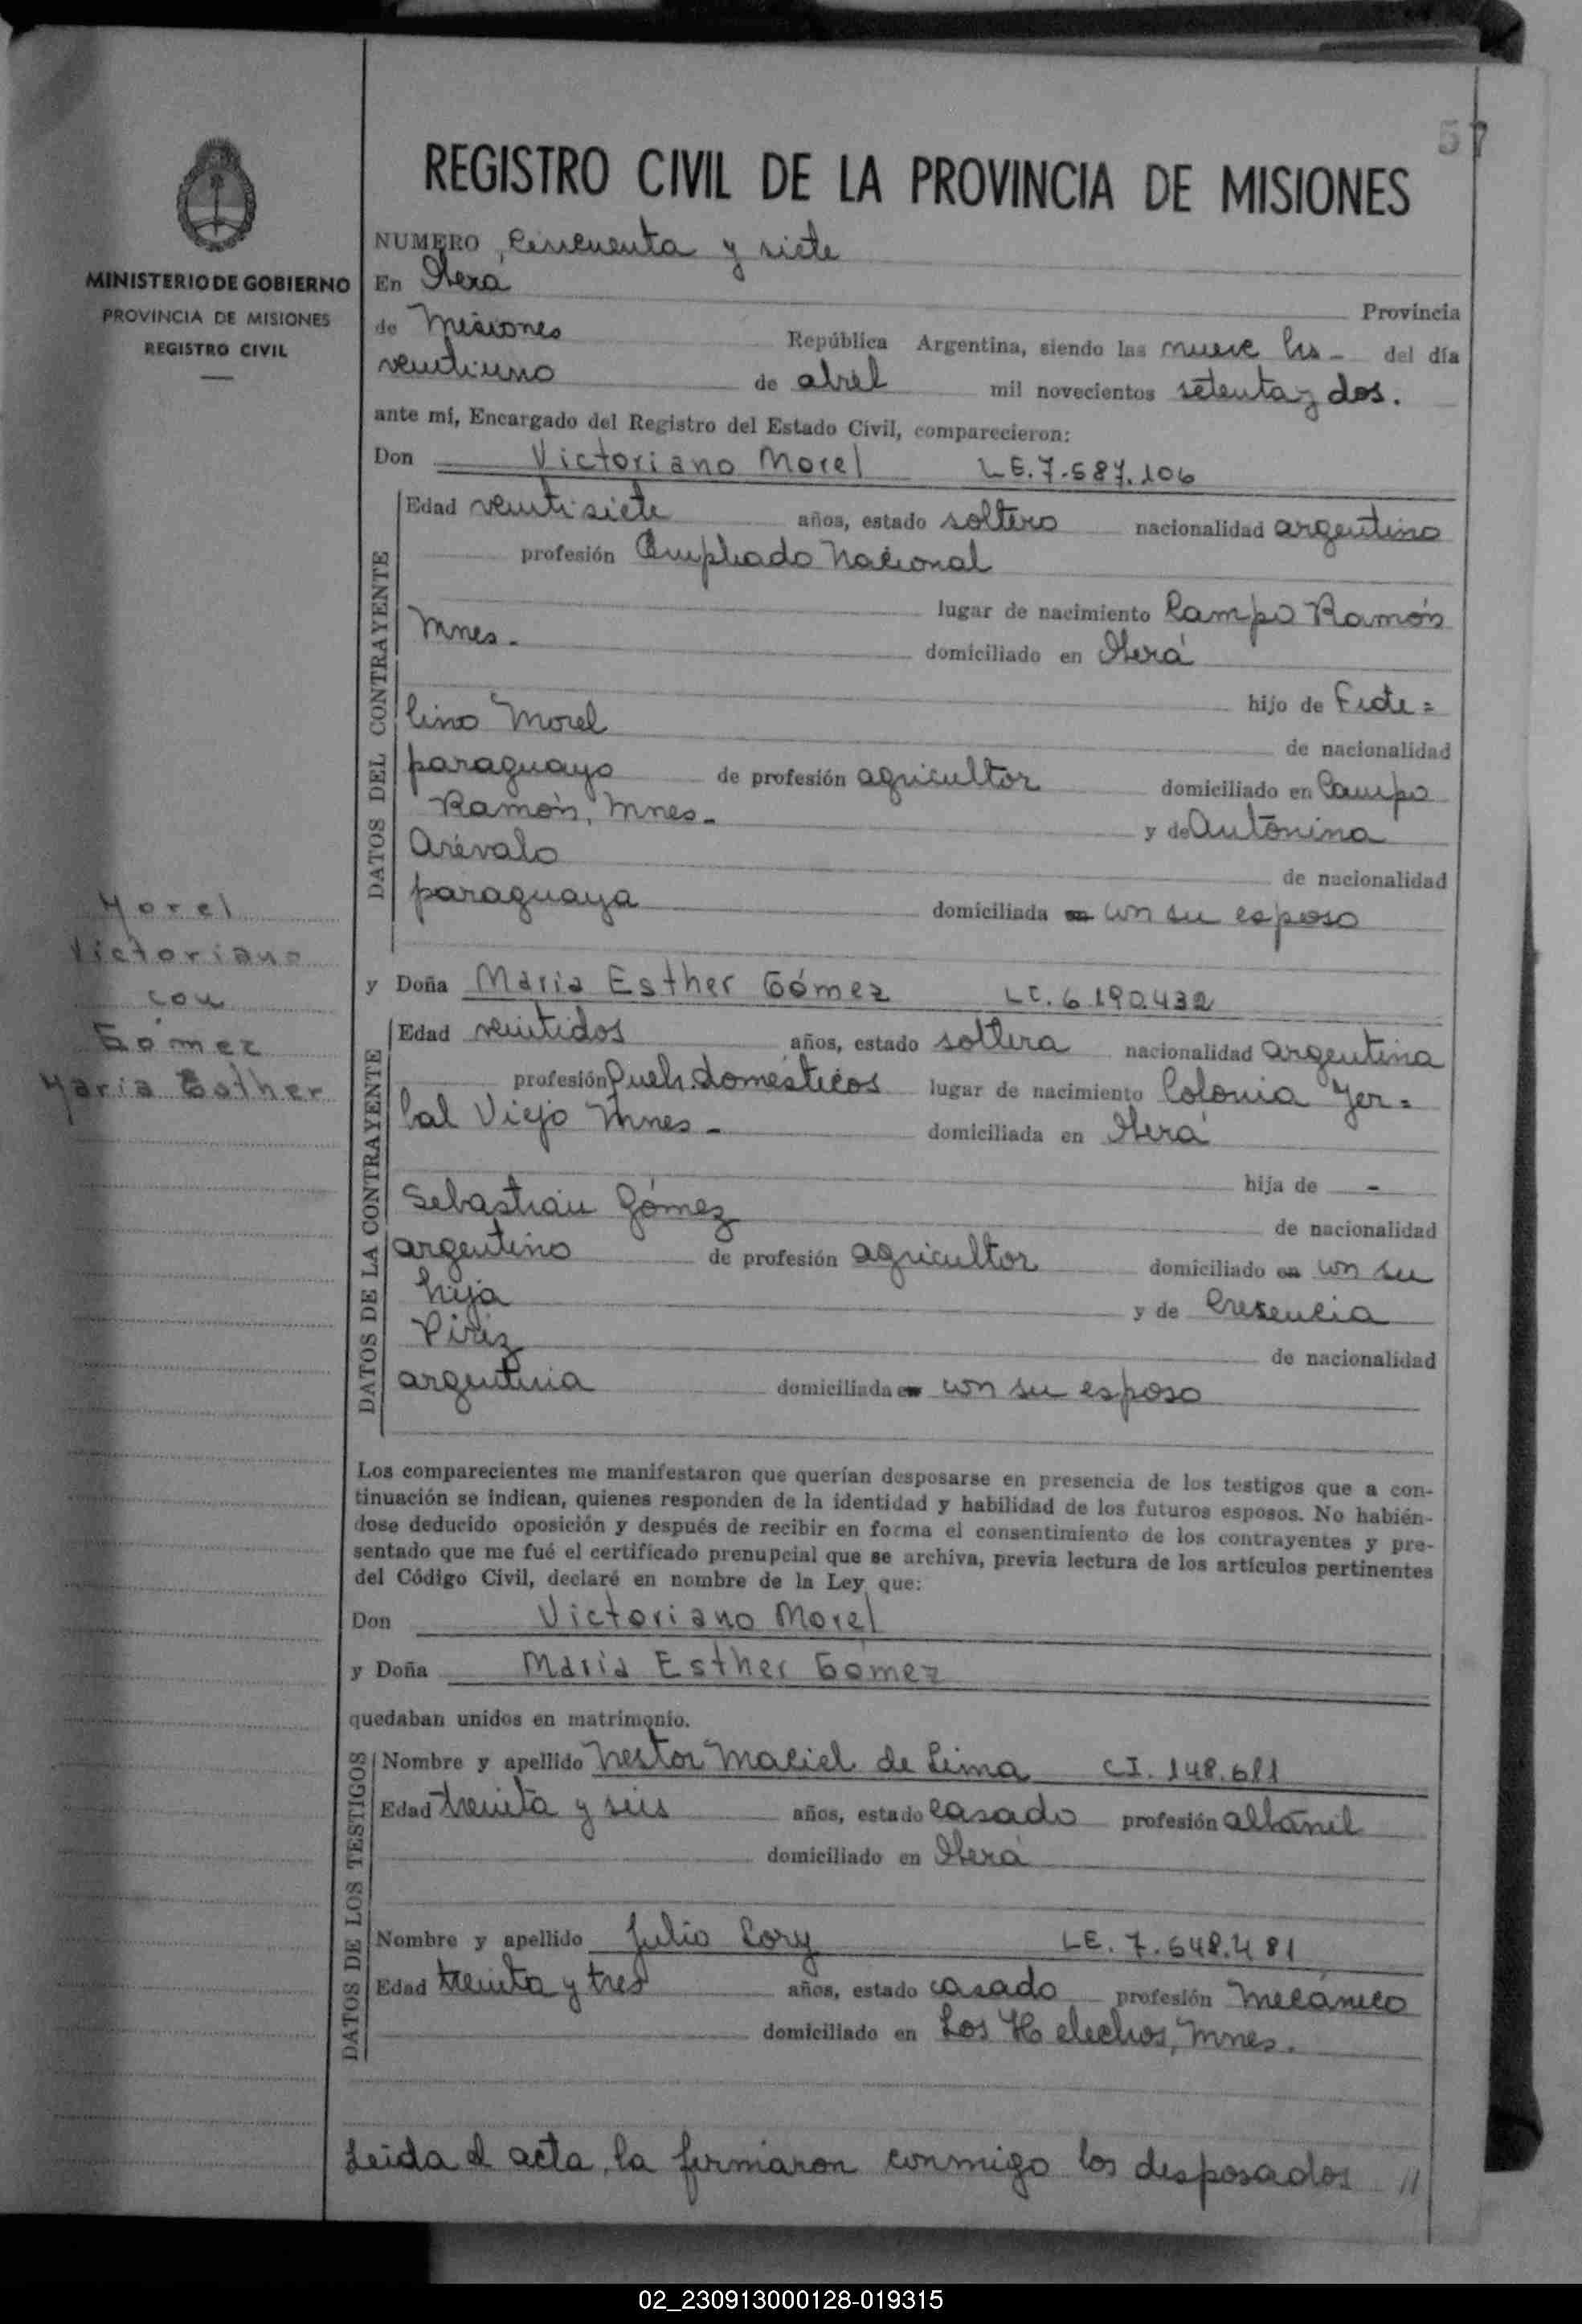 57
REGISTRO CIVIL DE LA PROVINCIA DE MISIONES
MINISTERIO DE GOBIERNO
PROVINCIA DE MISIONES
REGISTRO CIVIL
NUMERO Cincuenta y siete
En Oberá Provincia
de Misiones República Argentina, siendo las nueve hs - del día
veintiuno de abril mil novecientos setenta y dos.
ante mí, Encargado del Registro del Estado Civil, comparecieron:
Don Victoriano Morel LE. 7.587.106
DATOS DEL CONTRAYENTE
Edad veintisiete años, estado soltero nacionalidad argentino
profesión Empleado Nacional
lugar de nacimiento Campo Ramón
Mnes. domiciliado en Oberá
hijo de Fide=
lino Morel de nacionalidad
paraguayo de profesión agricultor domiciliado en Campo
Ramón, Mnes. y de Antonina
Arévalo de nacionalidad
paraguaya domiciliada en con su esposo
Morel
Victoriano
con
Gómez
María Esther
y Doña María Esther Gómez LC. 6.190.432
DATOS DE LA CONTRAYENTE
Edad veintidos años, estado soltera nacionalidad argentina
profesión Queh. domésticos lugar de nacimiento Colonia Yer=
bal Viejo Mnes - domiciliada en Oberá
hija de -
Sebastián Gómez de nacionalidad
argentino de profesión agricultor domiciliado en con su
hija y de Cresencia
Piriz de nacionalidad
argentina domiciliada en con su esposo
Los comparecientes me manifestaron que querían desposarse en presencia de los testigos que a con-
tinuación se indican, quienes responden de la identidad y habilidad de los futuros esposos. No habién-
dose deducido oposición y después de recibir en forma el consentimiento de los contrayentes y pre-
sentado que me fué el certificado prenupcial que se archiva, previa lectura de los artículos pertinentes
del Código Civil, declaré en nombre de la Ley que:
Don Victoriano Morel
y Doña María Esther Gómez
quedaban unidos en matrimonio.
DATOS DE LOS TESTIGOS
Nombre y apellido Nestor Maciel de Lima CI. 148.681
Edad treinta y seis años, estado casado profesión albañil
domiciliado en Oberá
Nombre y apellido Julio Cory LE. 7.648.481
Edad treinta y tres años, estado casado profesión Mecánico
domiciliado en Los Helechos, Mnes.
Leida el acta, la firmaron conmigo los desposados //
02_230913000128-019315